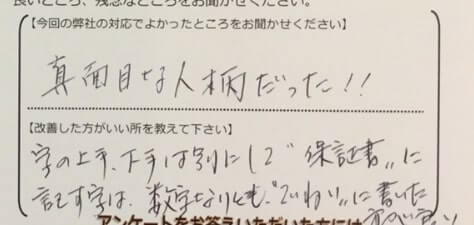 良いところ、残念なところをお聞かせください。
【今回の弊社の対応でよかったところをお聞かせください】
真面目な人柄だった!!
【改善した方がいい所を教えて下さい】
字の上手、下手は別にして〝保証書〟に
記す字は、数字なりとも、〝ていねい〟に書いた
方が良い
アンケートをお答えいただいた方には